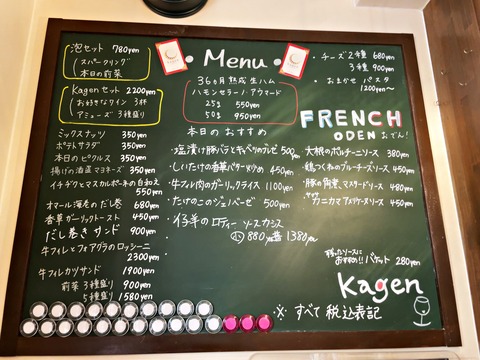 泡セット 780yen
スパークリング
本日の前菜
Kagenセット 2200yen
お好きなワイン 3杯
アミューズ 3種盛り
ミックスナッツ 350yen
ポテトサラダ 350yen
本日のピクルス 350yen
揚げの酒盗マヨネーズ 350yen
イチヂクとマスカルポーネの白和え
550yen
オマール海老のだし巻 680yen
香草ガーリックトースト 450yen
だし巻きサンド 900yen
牛フィレとフォアグラのロッシーニ
2300yen
牛フィレカツサンド 1900yen
前菜 3種盛り 900yen
5種盛り 1580yen
Menu
36ヵ月熟成生ハム
ハモンセラーノ・アウマード
25g 550yen
50g 950yen
本日のおすすめ
・塩漬け豚バラとキャベツのブレゼ 500yen
・しいたけの香草バター炒め 450yen
・牛フィレ肉のガーリックライス 1100yen
・たけのこのジェノベーゼ 500yen
・仔羊のロティー ソースカシス
小 880yen 普 1380yen
・チーズ 2種 680yen
3種 900yen
・おまかせ パスタ
1200yen〜
FRENCH
ODEN おでん!
・大根のボルチーニソース 380yen
・鶏つくねのブルーチーズソース 450yen
・豚の角煮、マスタードソース 480yen
・カニカマ アメリケーヌソース 450yen
残ったソースに
おすすめ!! バケット 280yen
Kagen
※ すべて 税込表記